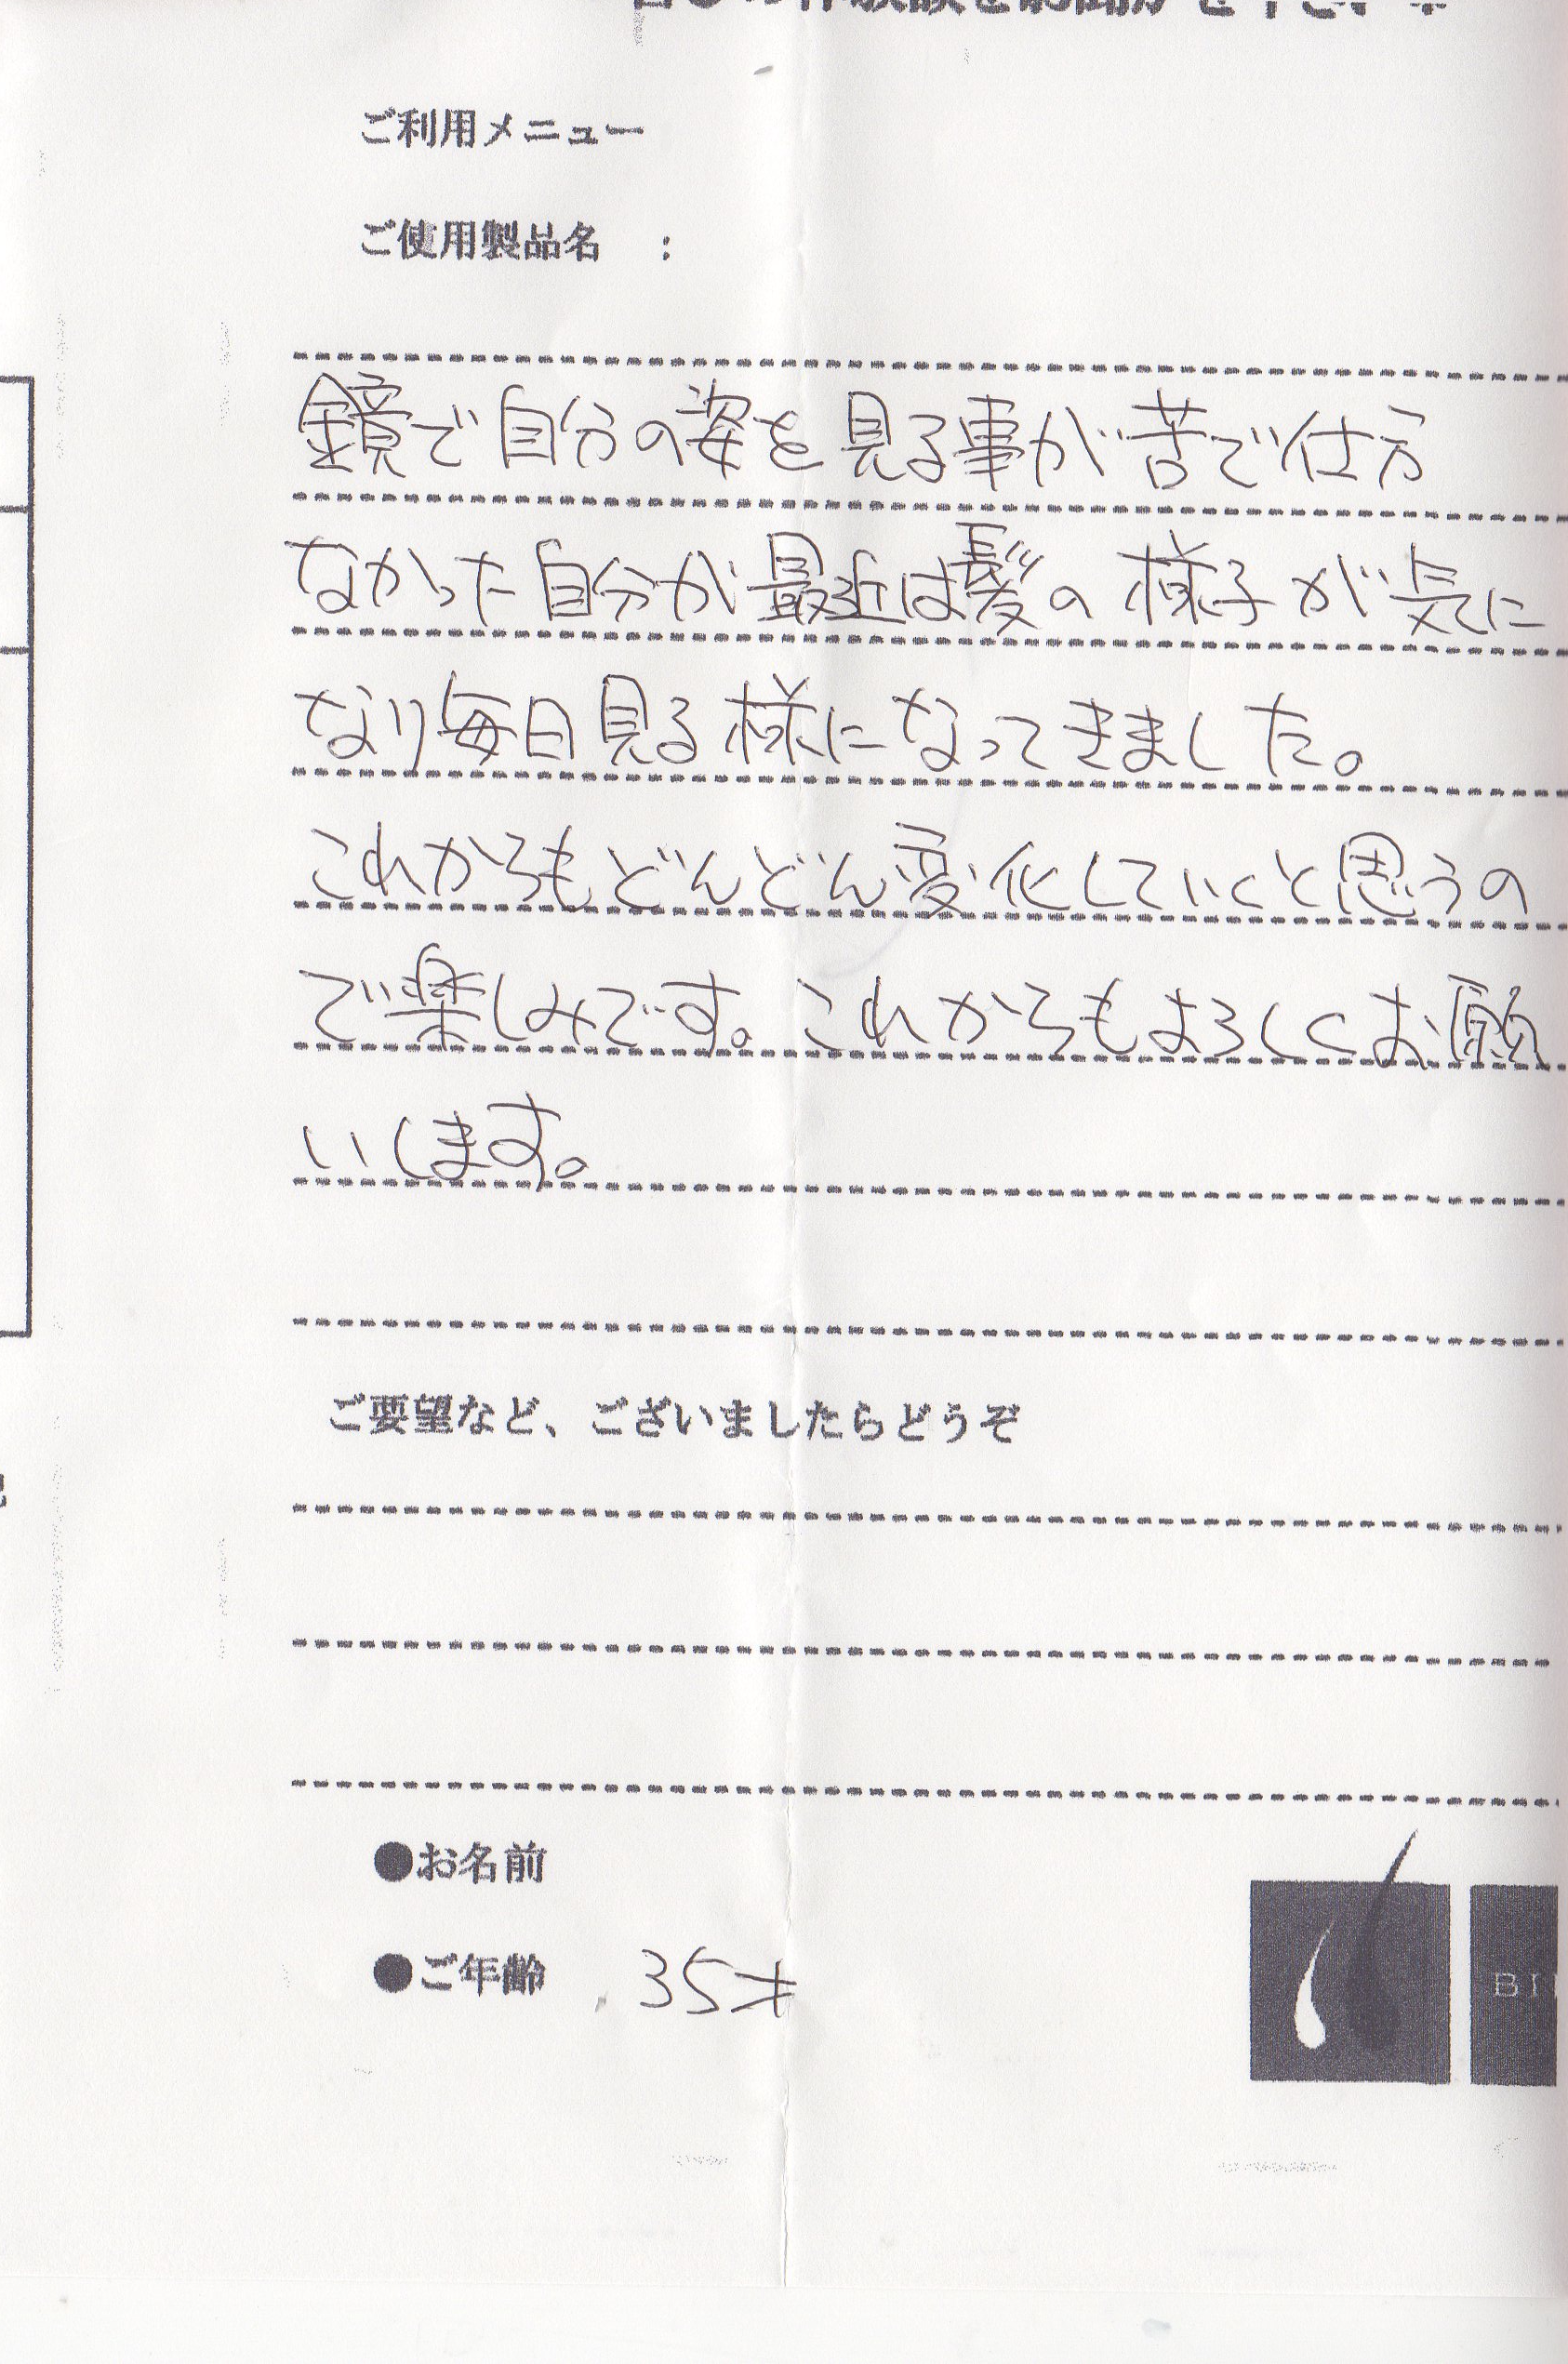 ご利用メニュー
ご使用製品名 :
鏡で自分の姿を見る事が苦で仕方
なかった自分が最近は髪の様子が気に
なり毎日見る様になってきました。
これからもどんどん変化していくと思うの
で楽しみです。これからもよろしくお願
いします。
ご要望など、ございましたらどうぞ
●お名前
●ご年齢 35才
BI